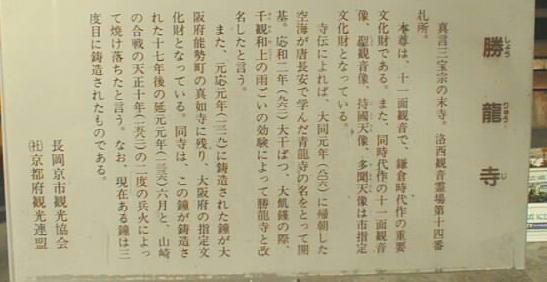 勝龍寺
しょう
りゅう
じ
真言三宝宗の末寺。洛西観音霊場第十四番
札所。
本尊は、十一面観音で、鎌倉時代作の重要
文化財である。また、同時代作の十一面観音
像、聖観音像、持國天像、多聞天像は市指定
文化財となっている。
寺伝によれば、大同元年（八〇六）に帰朝した
空海が唐長安で学んだ青龍寺の名をとって開
基。応和二年（九六二）大干ばつ、大飢饉の際、
千観和上の雨ごいの効験によって勝龍寺と改
名したと言う。
また、元応元年（一三一九）に鋳造された鐘が大
阪府能勢町の真如寺に残り、大阪府の指定文
化財となっている。同寺は、この鐘が鋳造さ
れた十七年後の延元元年（一三三六）六月と、山崎
の合戦の天正十年（一五八二）の二度の兵火によっ
て焼け落ちたと言う。なお、現在ある鐘は三
度目に鋳造されたものである。
長岡京市観光協会
㈳京都府観光連盟